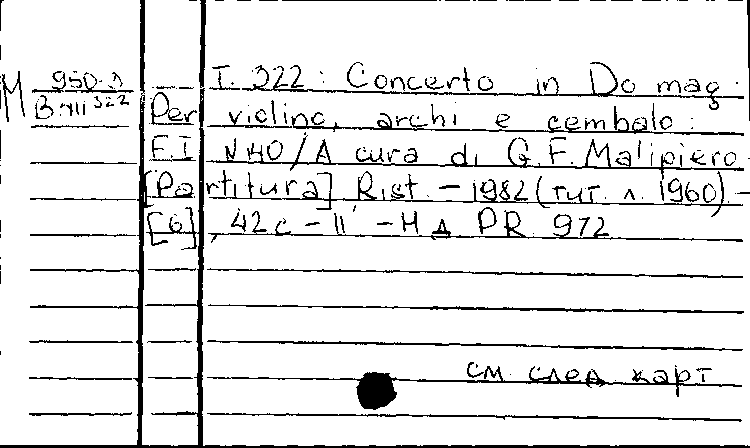 М 950-1
В-411 322
Т. 322 : Concerto in Do mag.
Per violino, archi e cembalo :
F.I N 140 / A cura di G.F. Malipiero.
[Partitura] Rist. - 1982 (тит. л. 1960) -
[6], 42 c - 11' - Н Д PR 972
см след карт